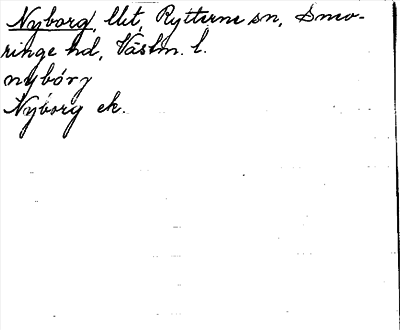 Nyborg, llt, Rytterne sn, Snev-
ringe hd, Västm. l.
nybórj
Nyborg ek.